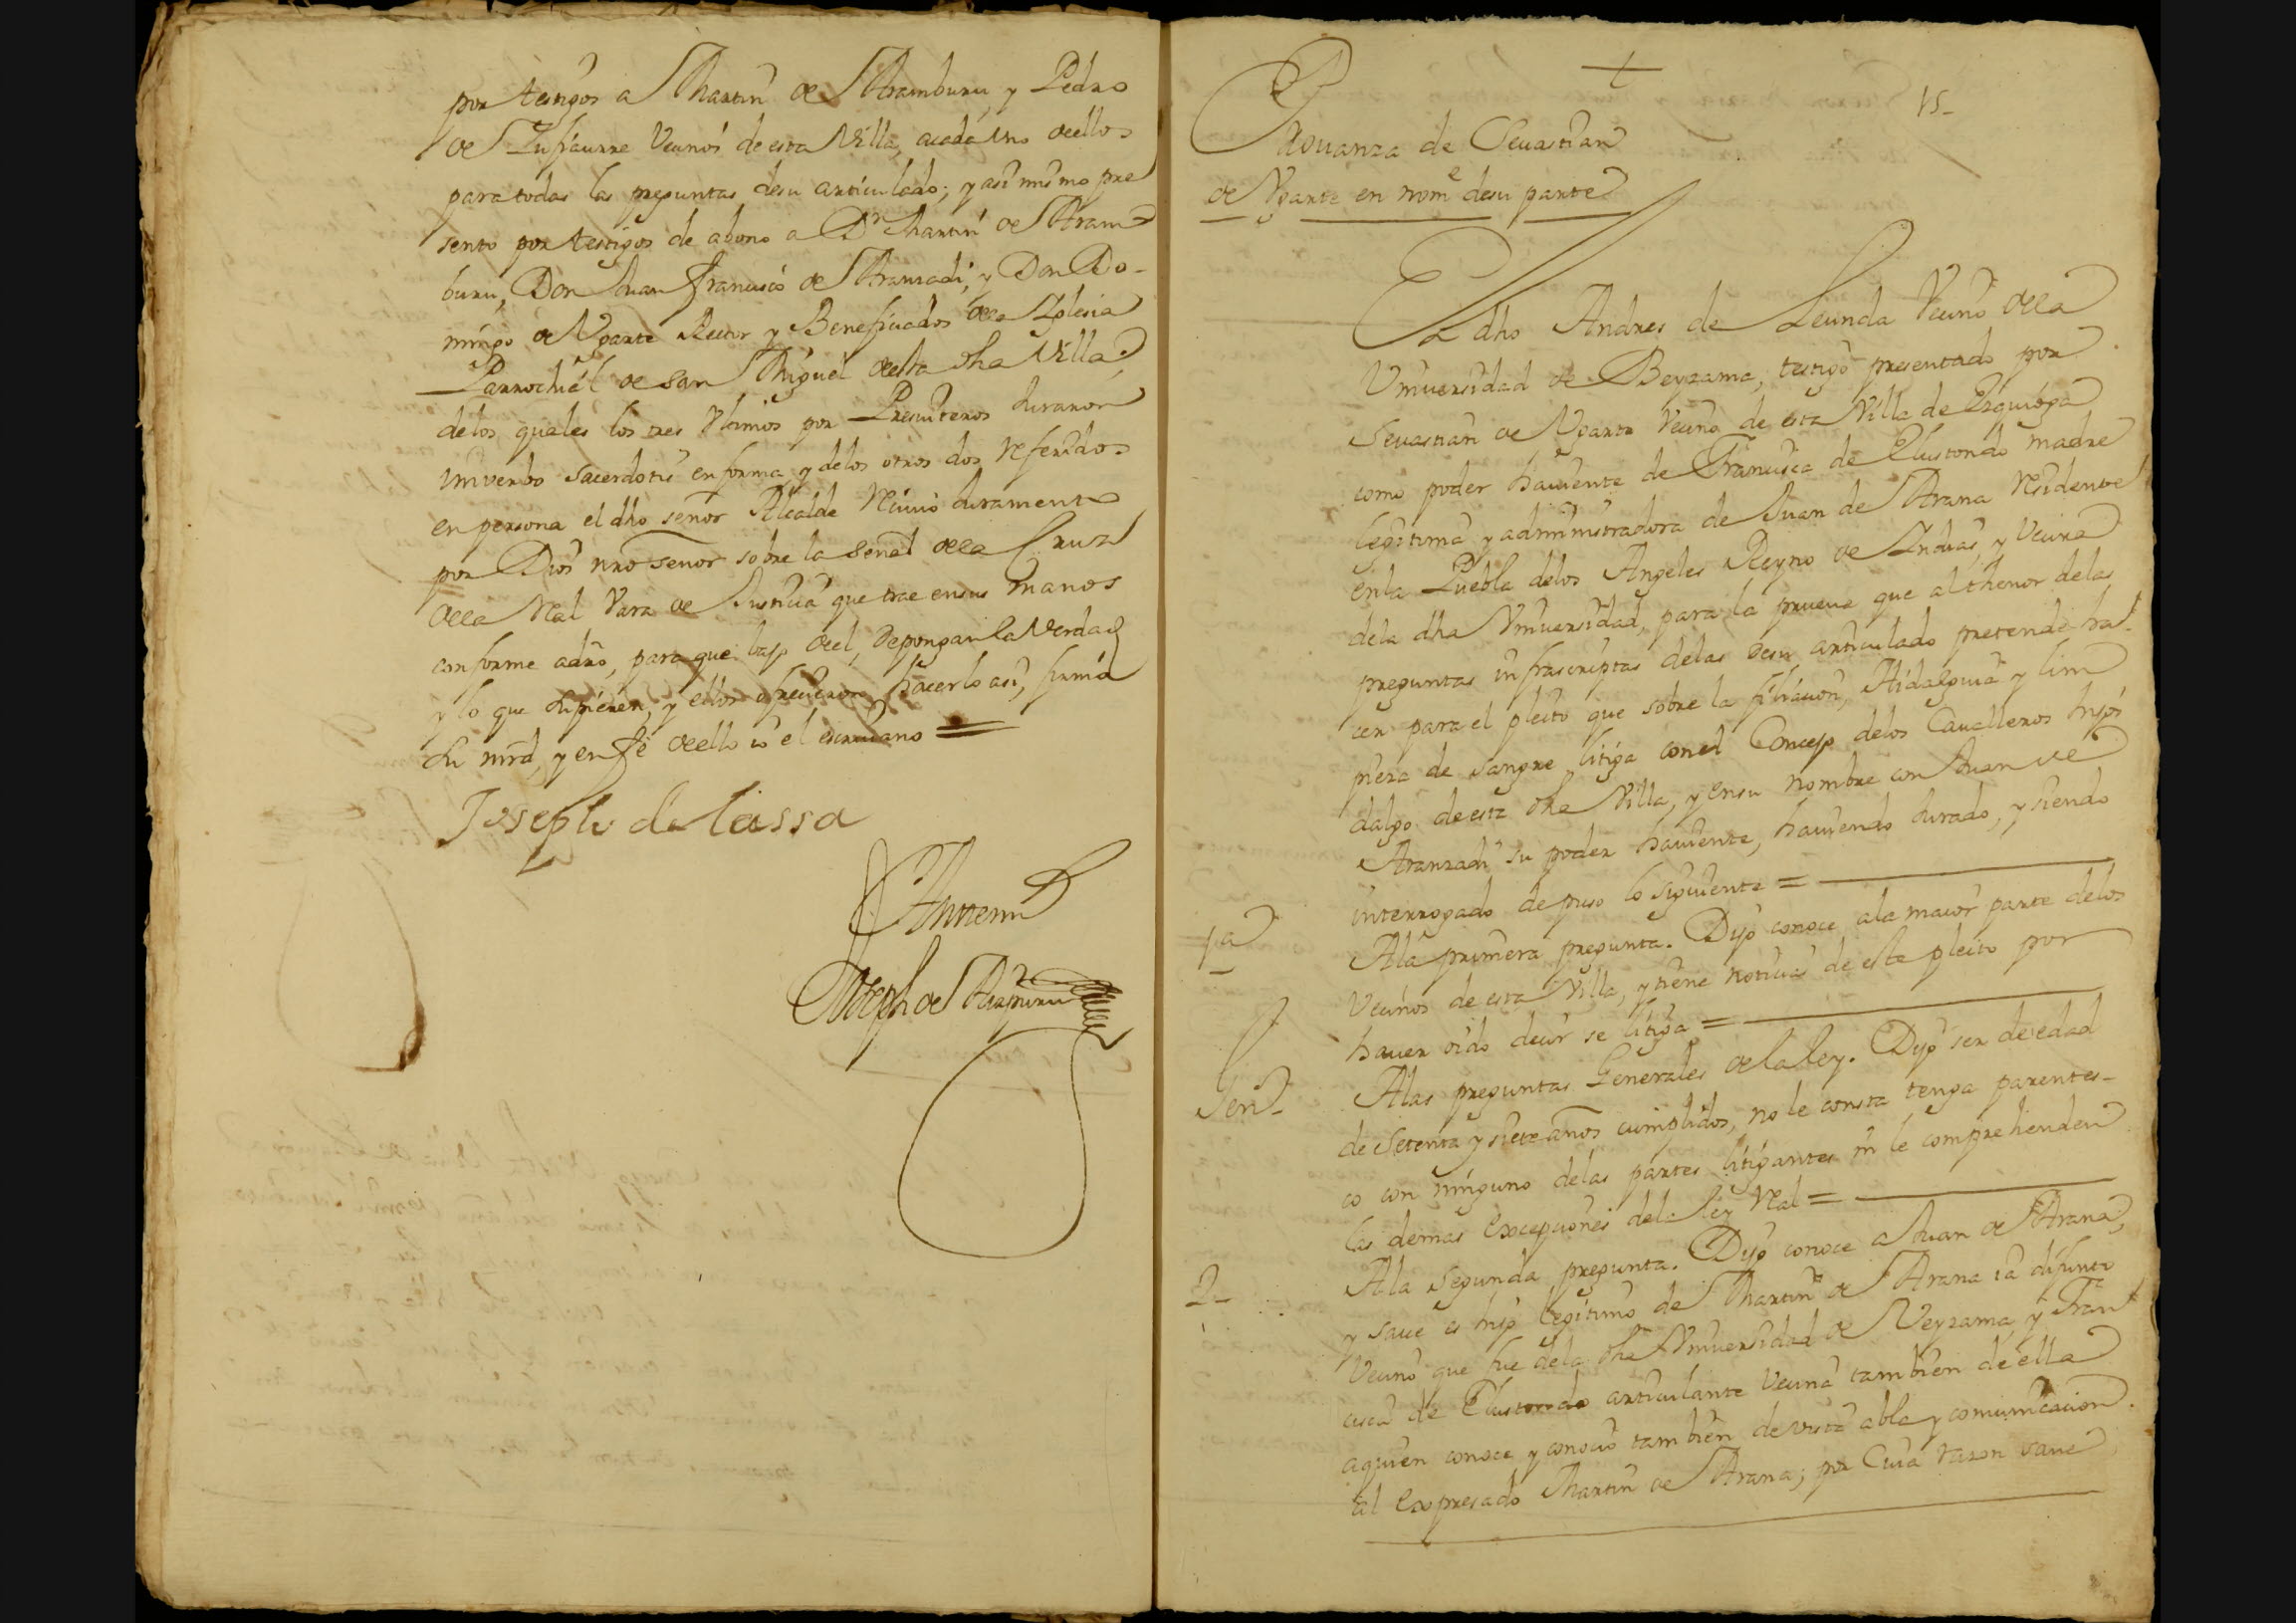 por testigos a Martin de Aramburu, y Pedro
de Insaurre Vecinos de esta Villa, a cada uno de ellos
para todas las preguntas de su articulado; y asi mismo pre
sento por testigos de abono a Dn Martin de Aram-
buru, Don Juan Francisco de Aranzadi, y Don Do-
mingo de Ugarte Rector y Beneficiados de la Iglesia
Parrochial de San Miguel desta dha Villa,
delos quales los tres ultimos por Presviteros juraron
in verbo sacerdotis en forma, y delos otros dos referidos
en persona el dho señor Alcalde Recivió juramento
por Dios nro señor sobre la señal dela Cruz
dela Real Vara de Justicia que trae en sus manos
conforme adro, para que bajo del, depongan la verdad
y lo que supieren, y ellos ofrecieron hacerlo asi, firmó
su mrd, y en fe dello io el escrivano =
Joseph de lassa
Antemi
Joseph de Aizpuru
+
15-
Provanza de Sevastian
de Ugarte en nome desu parte
El dho Andres de Leunda Vecino dela
Universidad de Beyzama, testigo presentado por
Sevastian de Ugarte Vecino de esta Villa de Ezquioga
como poder haviente de Francisca de Elustondo madre
legitima y administradora de Juan de Arana Residente
en la Puebla delos Angeles Reyno de Indias, y Vecina
dela dha Universidad, para la prueva que al thenor delas
preguntas infrascriptas delas desu articulado pretende ha-
cer para el pleito que sobre la filiacion, Hidalguia y lim
pieza de sangre litiga con el Concejo delos Cavalleros hijos
dalgo de esta dha Villa, y en su nombre con Juan de
Aranzadi su poder haviente, haviendo jurado, y siendo
interrogado depuso lo siguiente =
1a
Ala primera pregunta. Dijo conoce ala maior parte delos
Vecinos de esta Villa, y tiene noticias de este pleito por
haver oido decir se litiga =
Gen-
Alas preguntas Generales dela ley. Dijo ser de edad
de setenta y siete años cumplidos, no le consta tenga parentes-
co con ninguno delas partes litigantes ni le comprehenden
las demas excepciones dela ley Real =
2-
Ala segunda pregunta. Dijo conoce a Juan de Arana,
y save es hijo legitimo de Martin de Arana ia difunto
Vecino que fue dela dha Universidad de Veyzama, y Fran
cisca de Elustondo articulante Vecina tambien de ella
aquien conoce y conoció tambien de vista abla y comunicacion
al expresado Martin de Arana; por cuia razon save